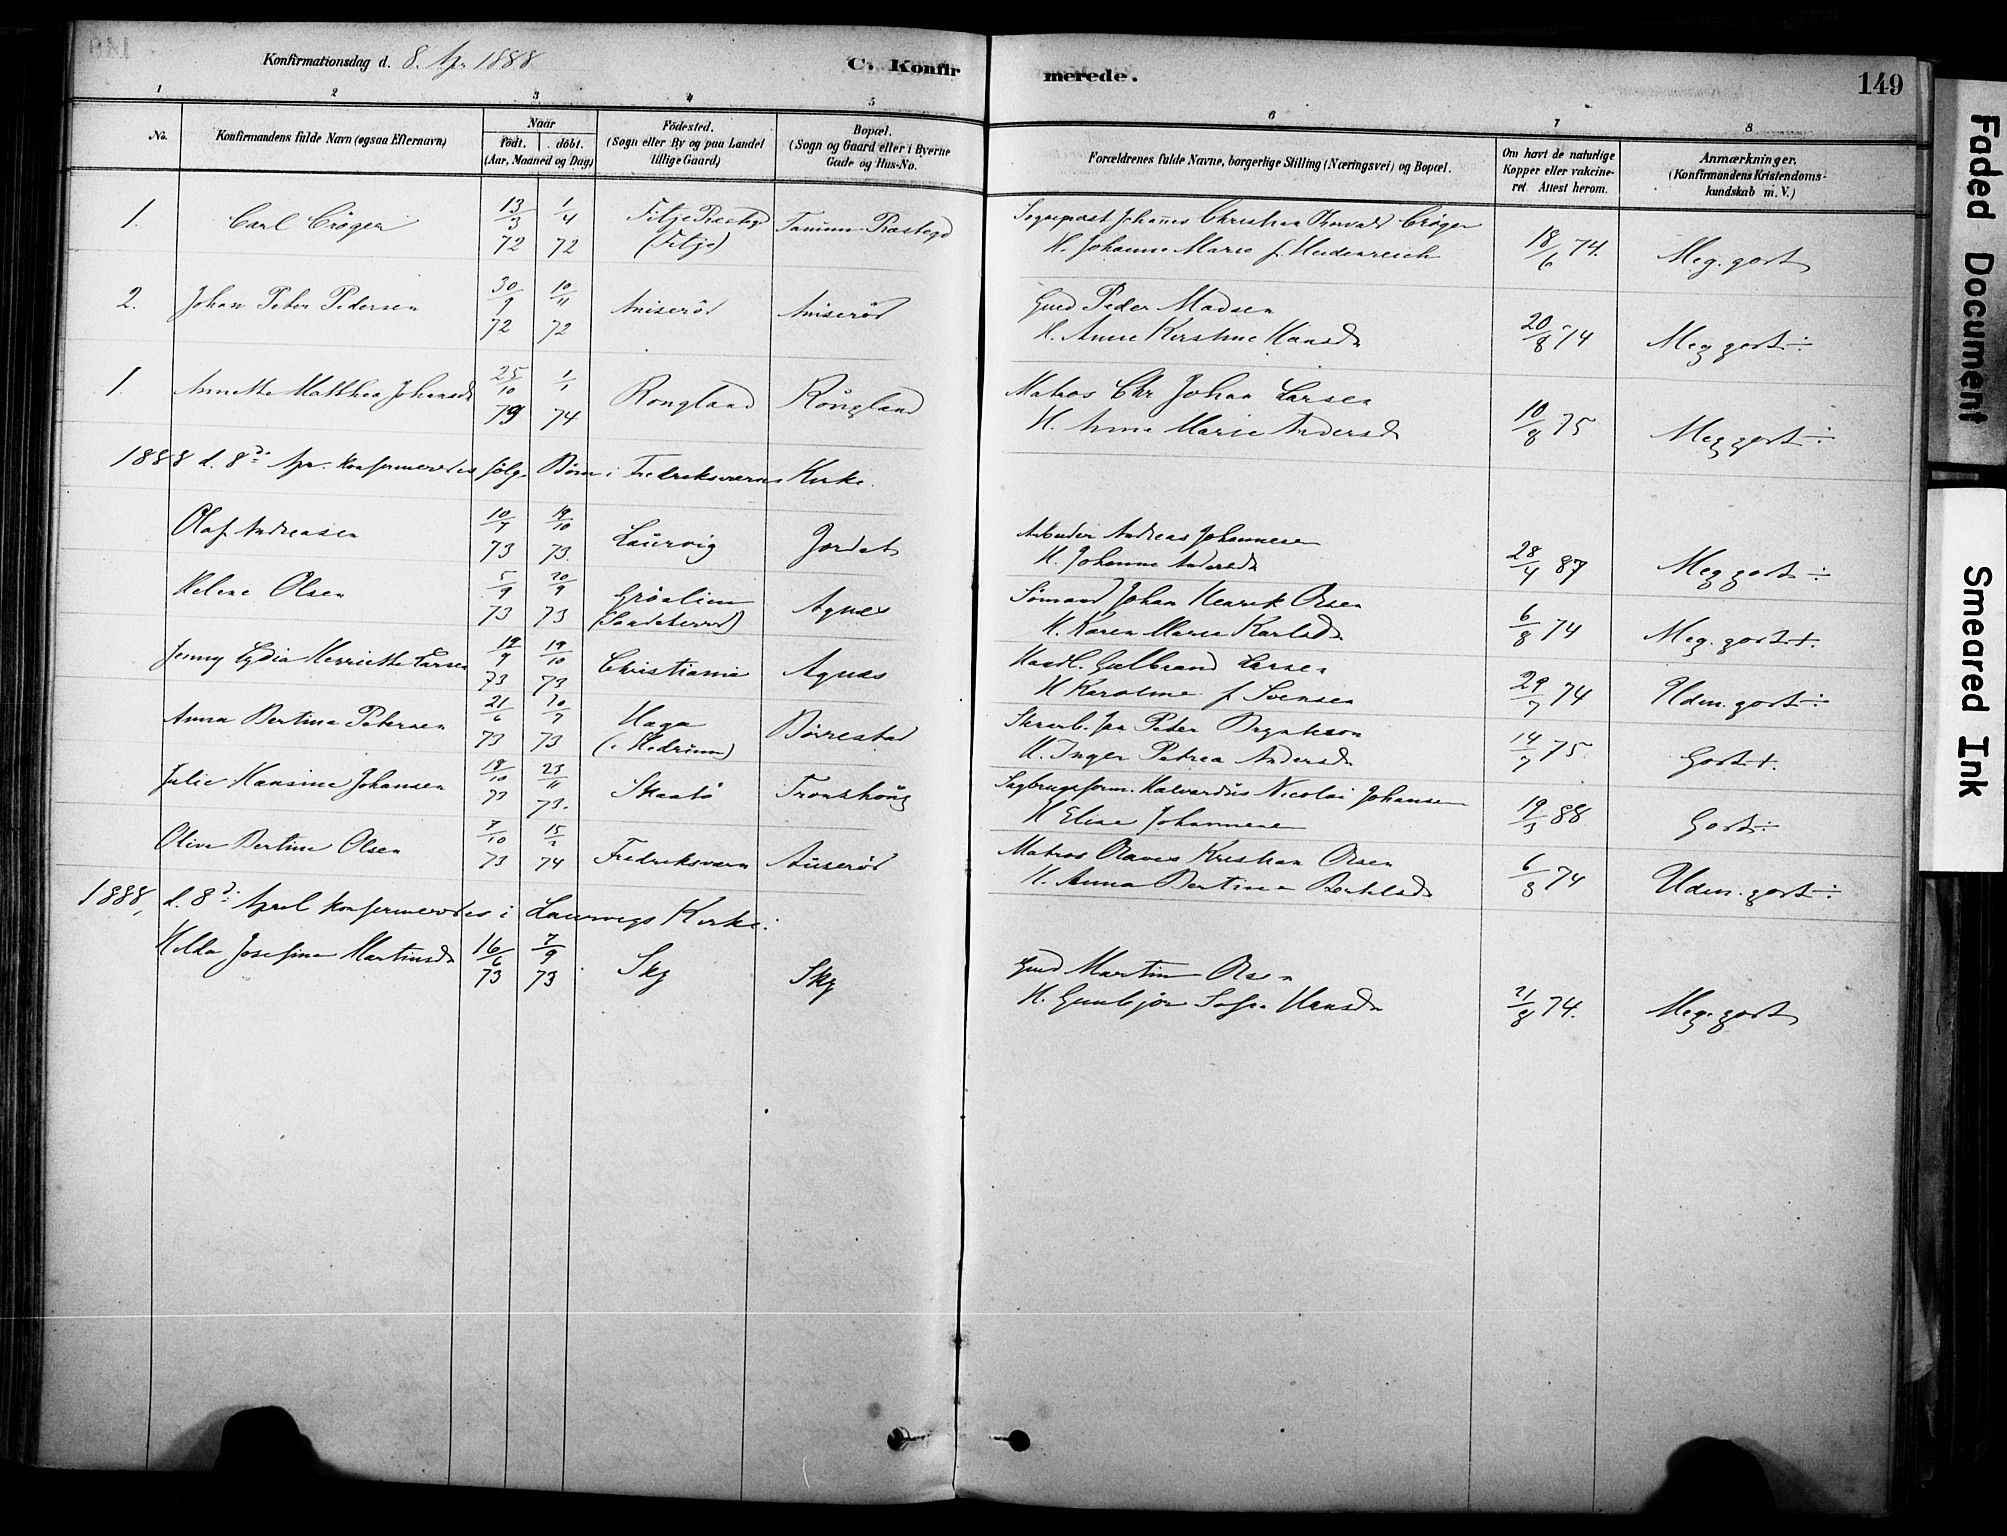 Konfirmationsdag d. 8. Apr. 1888
C. Konfirmerede.
149
1 2 3 4 5 6 7 8
No.
Konfirmandens fulde Navn (ogsaa Efternavn)
Naar
født. døbt.
(Aar, Maaned og Dag)
Fødested.
(Sogn eller By og paa Landet
tillige Gaard)
Bopæl.
(Sogn og Gaard eller i Byerne
Gade og Hus-No.
Forældrenes fulde Navne, borgerlige Stilling (Næringsvei) og Bopæl.
Om havt de naturlige
Kopper eller vakcine-
ret. Attest herom.
Anmærkninger.
(Konfirmandens Kristendoms-
kundskab m. V.)
1. Carl Crøger 13/3 72 1/4 72 Fitje Præstegd (Fitje) Tanum Præstegd
Sognepræst Johannes Christian Thorvald Crøger
H. Johanne Marie f. Heidenreich 18/6 74. Meg. godt
2. Johan Peter Pedersen 30/9 72 10/11 72 Aniserød Aniserød
Gmd Peder Madsen
H. Anne Kirstine Hansd. 20/8 74 Meg godt ÷
1. Annette Matthea Johansd. 25/10 73 1/1 74 Rongland Rongland
Matros Chr Johan Larsen
H. Anne Marie Andersd. 10/8 75 Meg godt ÷
1888 d. 8de Apr. konfirmeredes følg. Børn i Fredriksværns Kirke.
Olaf Andreasen 10/7 73 19/10 73. Laurvig Jordet
Arbeider Andreas Johannesen
H. Johanne Andersd. 28/4 87 Meg godt ÷
Helene Olsen 5/9 73 20/9 73 (Sandeherred) Agnes
Sømand Johan Henrik Olsen
H. Karen Marie Karlsd. 6/8 74 Meg. godt +.
Jenny Lydia Henriette Larsen 12/9 73 19/10 73 Christiania Agnes
Handl. Gulbrand Larsen
H Karoline f Svensen 29/7 74 Udm. godt ÷
Anna Bertine Petersen 21/6 73 20/7 73 Haga (i Hedrum) Børrestad
Peter
H. Inger Petrea Andersd. 14/7 75. Godt +.
Julie Hansine Johansen 18/10 73 23/11 73. Skaatø Fronshoug
Sagbrugsform. Halvardus Nicolai Johansen
H Elise Johannene 19/3 88 Godt ÷
Olive Bertine Olsen 7/10 73 15/2 74 Fredriksværn Auserød
Matros Olaves Kristian Olsen
H. Anna Bertine Bertelsd. 6/8 74 Udm. godt ÷
1888, d. 8de April konfirmeredes i Laurvigs Kirke:
Hilda Josefine Martinsd. 16/6 73 7/9 73 Sky Sky
Gmd Martin Olsen
H. Gunbjør Sofie Hansd. 21/8 74. Meg. godt
Faded Document
Smeared Ink